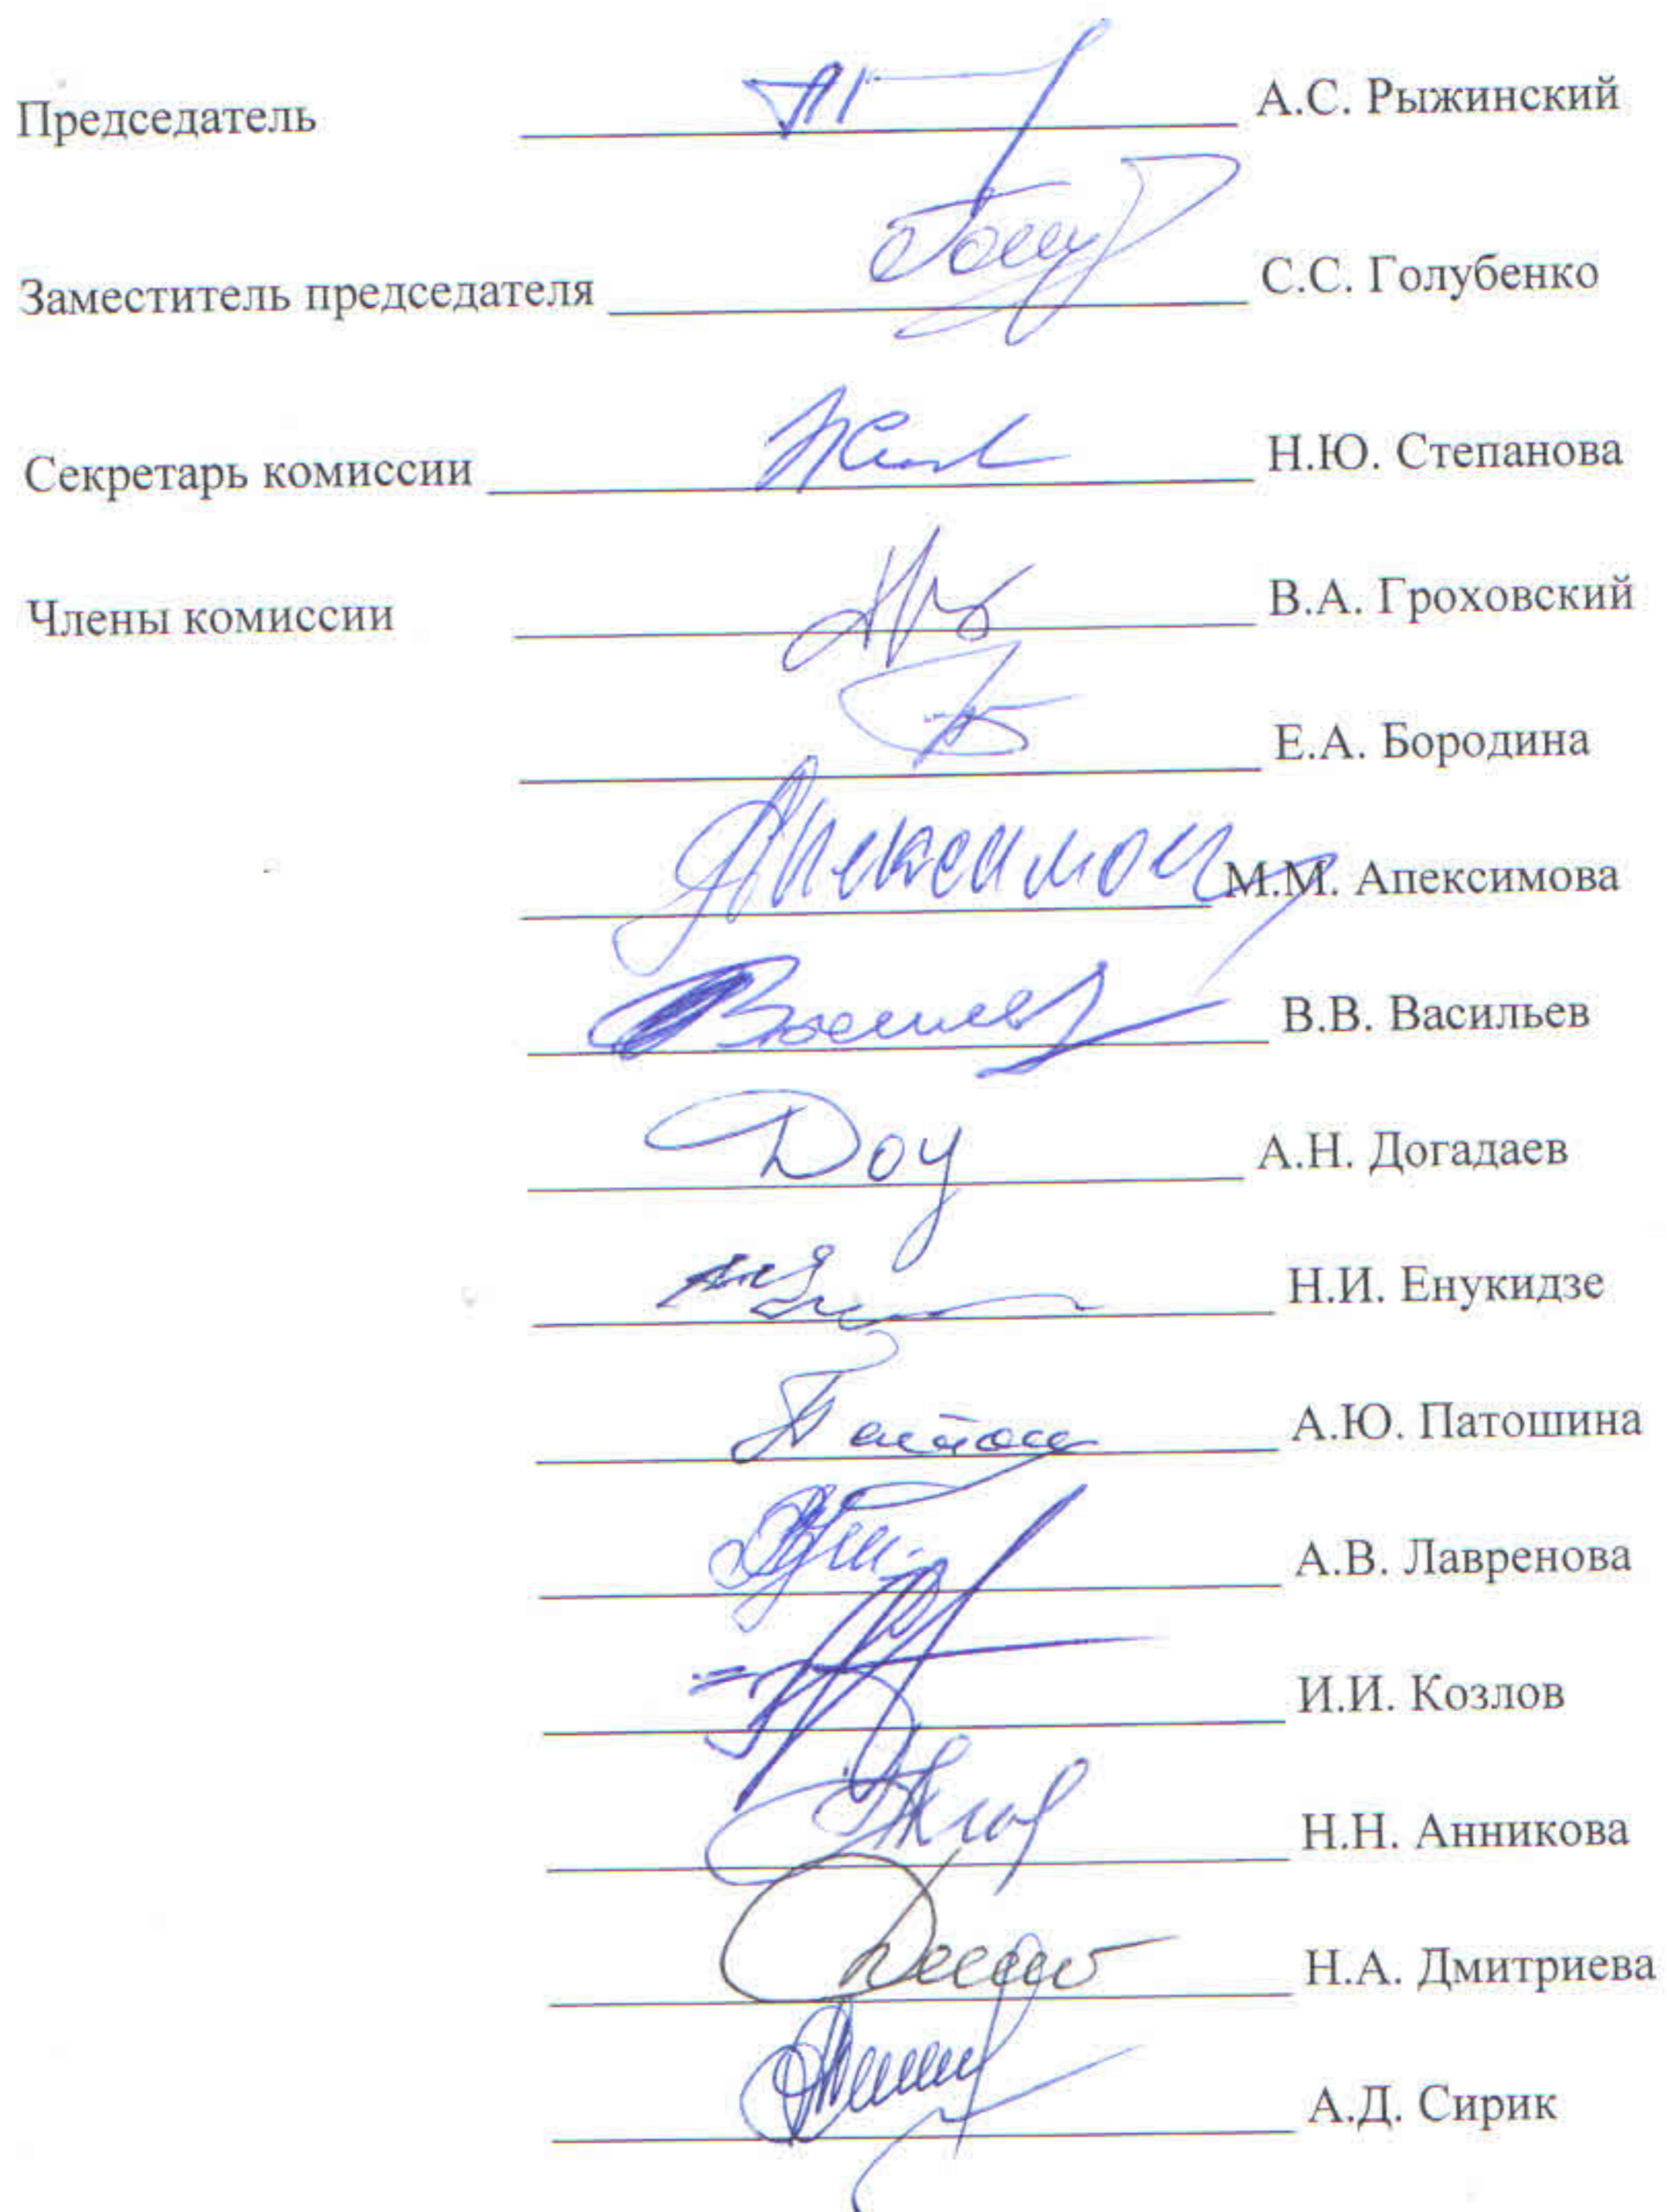 Председатель А.С. Рыжинский
Заместитель председателя С.С. Голубенко
Секретарь комиссии Н.Ю. Степанова
Члены комиссии В.А. Гроховский
Е.А. Бородина
М.М. Апексимова
В.В. Васильев
А.Н. Догадаев
Н.И. Енукидзе
А.Ю. Патошина
А.В. Лавренова
И.И. Козлов
Н.Н. Анникова
Н.А. Дмитриева
А.Д. Сирик